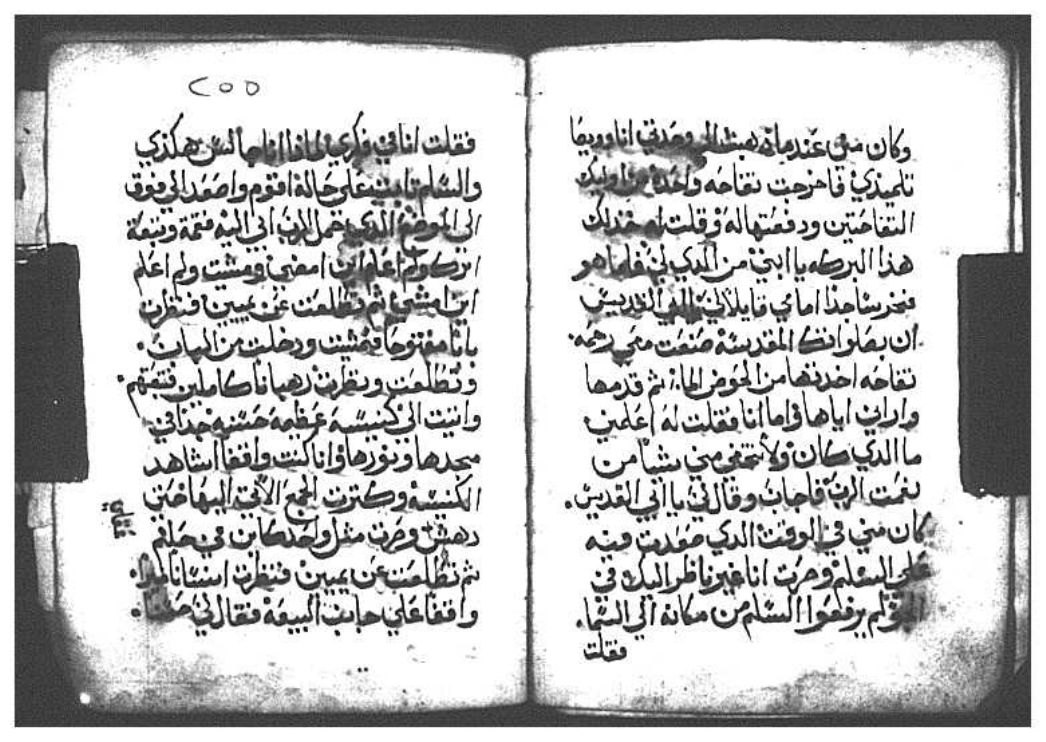 وكان مني عندما ذهبت الي وحدتي انا وويصا
تلميذي فاخرجت تفاحه واحدة من اوليك
التفاحتين ودفعتها له وقلت له خذ لك
هذا البركه يا ابني من الذي لي فاما هو
فخر ساجدا امامي قايلا لي القديس
ان بصلواتك المقدسة صنعت معي رحمه.
تفاحه اخدتها من الحوض الما. ثم قدمها
واراني اياها واما انا فقلت له اعلمني
ما الدي كان ولا تخفي مني شيا من
نعمت الرب فاجاب وقال لي يا ابي القديس.
كان مني في الوقت الدي صعدت فيه
علي السلم وصرت انا غير ناظر اليك في
لم يرفعوا السلم من مكانه الي السما.
فقلت
٢٥٥
فقلت انا في فكري لماذا انا جالس هكذي
والسلم ثابت علي حاله اقوم واصعد الي فوق
الي الموضع الدي حمل الرب ابي اليه فتمة وتبعة
اترك ولم اعلم اين امضي ومشيت ولم اعلم
اين امشي ثم تطلعت عن يميني فنظرت
بابا مفتوحا فمشيت ودخلت من الباب.
وتطلعت ونظرت رهبانا كاملين
واتيت الي كنيسه عظيمه حسنه جدا في
مجدها ونورها وانا كنت واقفا اشاهد
الكنيسه وكترت الجمع الاتي اليها
دهش وصرت مثل واحد كاين في حلم
ثم تطلعت عن يميني فنظرت انسانا
واقفا علي جانب البيعة فقال لي